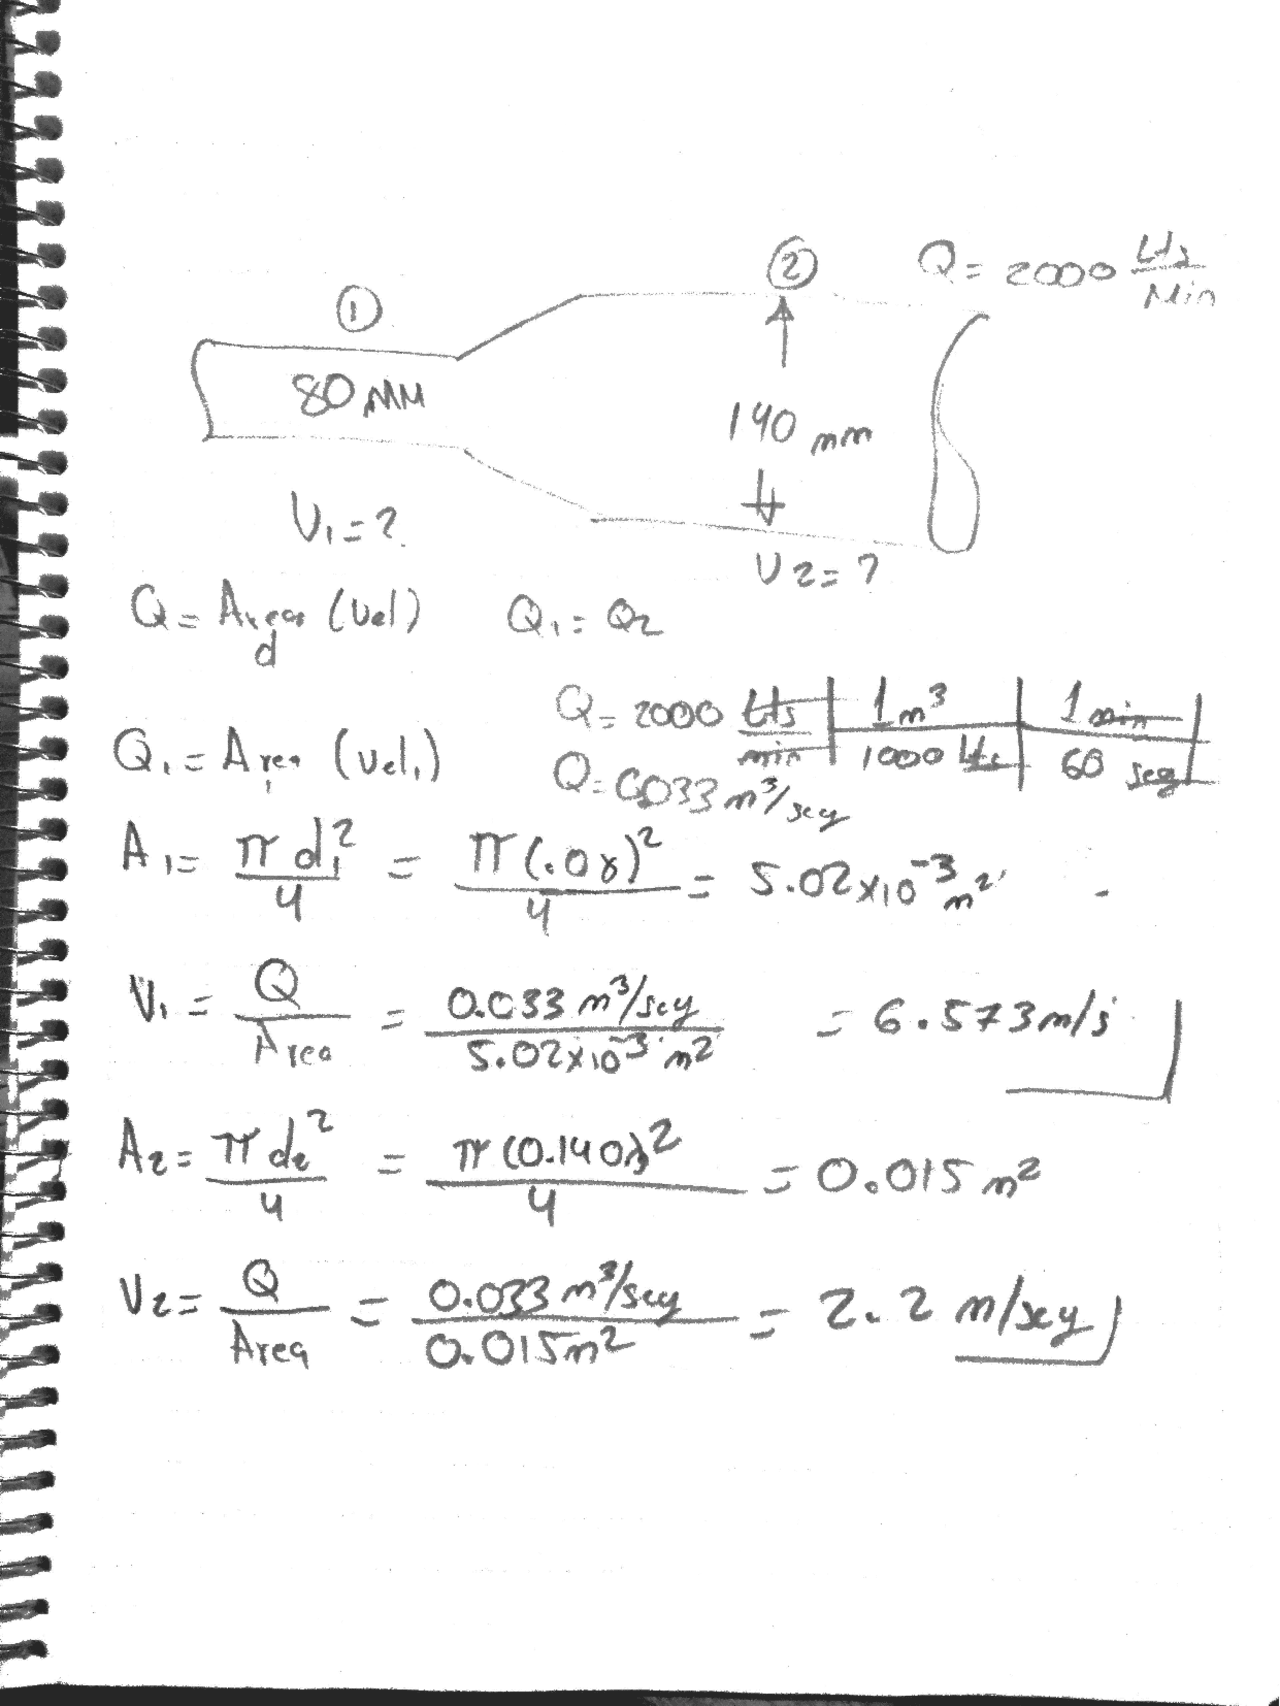 ② Q = 2000 Lts/Min
①
80 MM
140 mm
V₁ = ?
V₂ = ?
Q = Area (Vel) Q₁ = Q₂
d
Q = 2000 Lts/min | 1 m³/1000 Lts | 1 min/60 seg |
Q₁ = Area₁ (Vel₁)
Q = 0.033 m³/seg
A₁ = π d₁²/4 = π(.08)²/4 = 5.02x10⁻³ m²
V₁ = Q/Area = 0.033 m³/seg / 5.02x10⁻³ m² = 6.573 m/s
A₂ = π d₂²/4 = π(0.140)²/4 = 0.015 m²
V₂ = Q/Area = 0.033 m³/seg / 0.015 m² = 2.2 m/seg